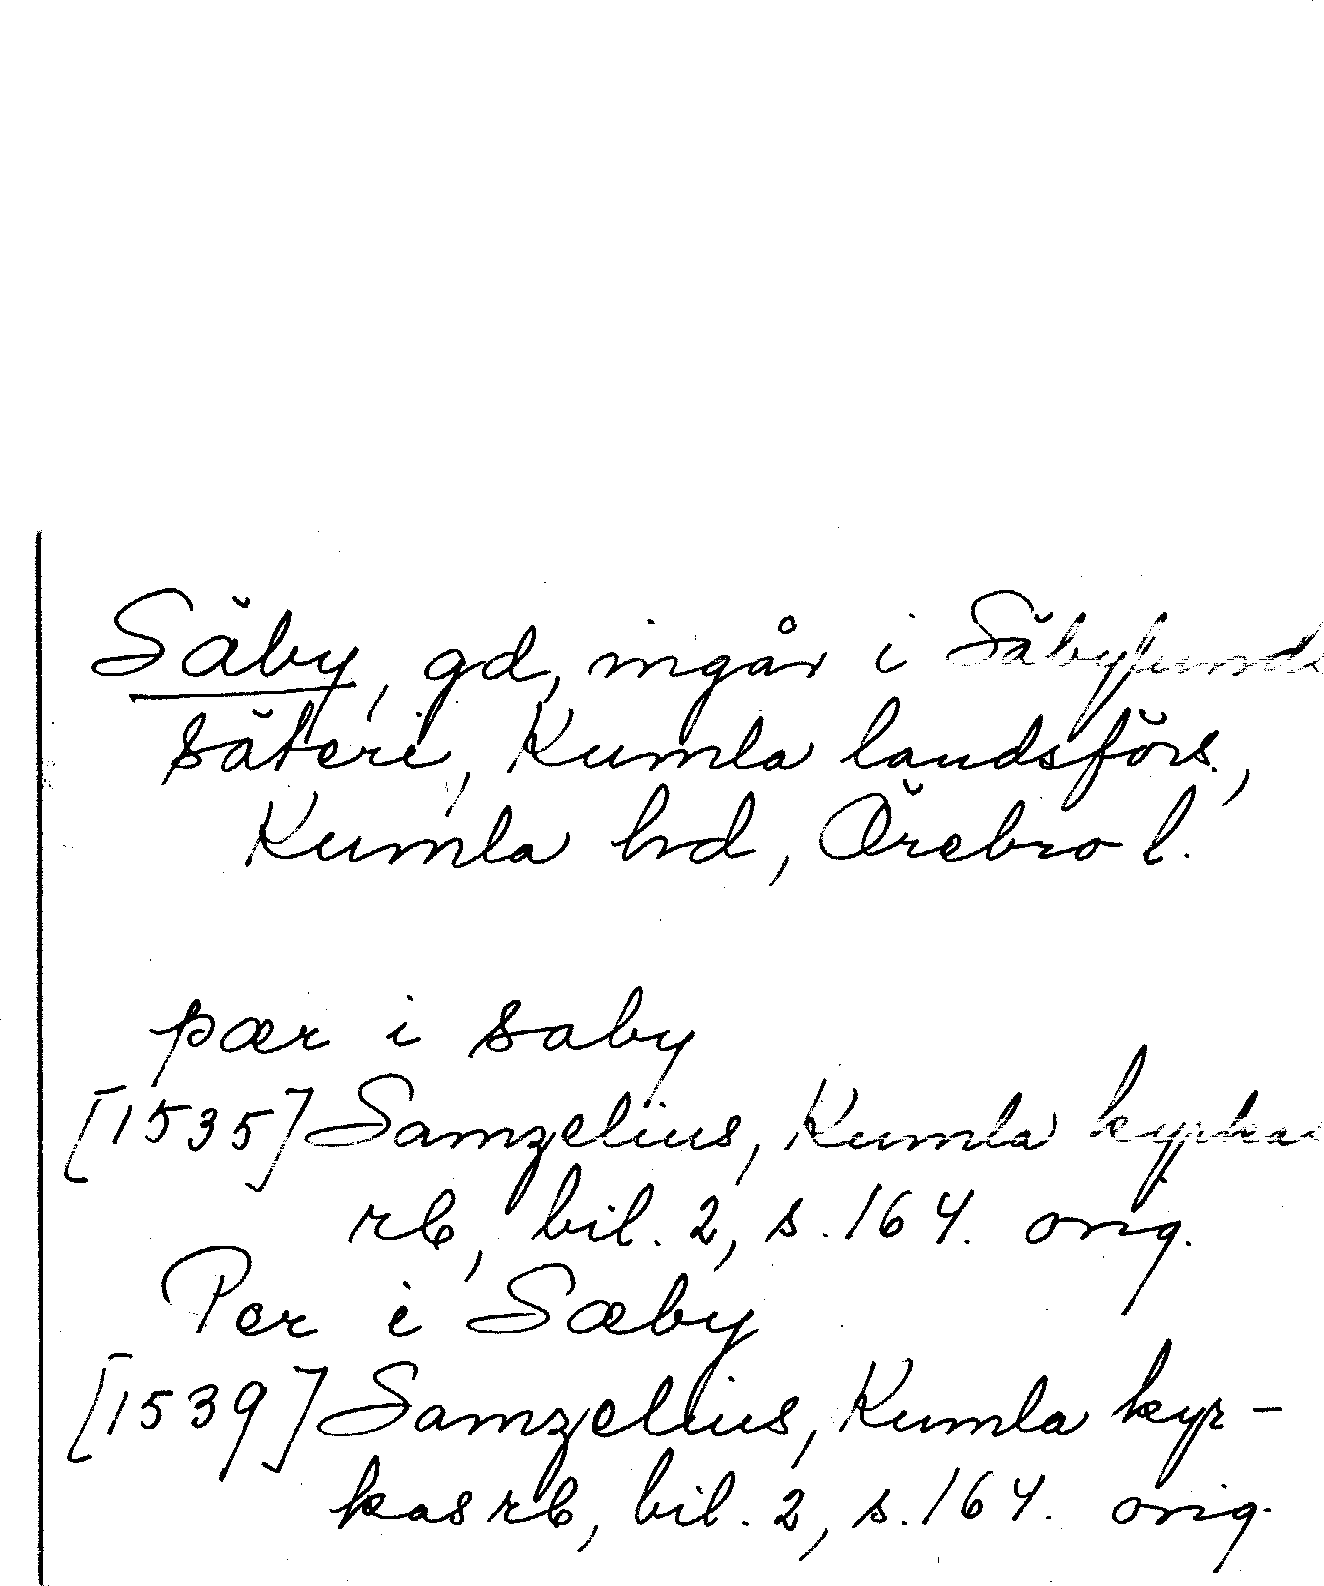 Säby, gd, ingår i Säbylunds
säteri, Kumla landsförs.,
Kumla hd, Örebro l.
pær i saby
[1535] Samzelius, Kumla kyrkas
rb, bil. 2, s. 164. orig.
Per i Sæby
[1539] Samzelius, Kumla kyr-
kas rb, bil. 2, s. 164. orig.